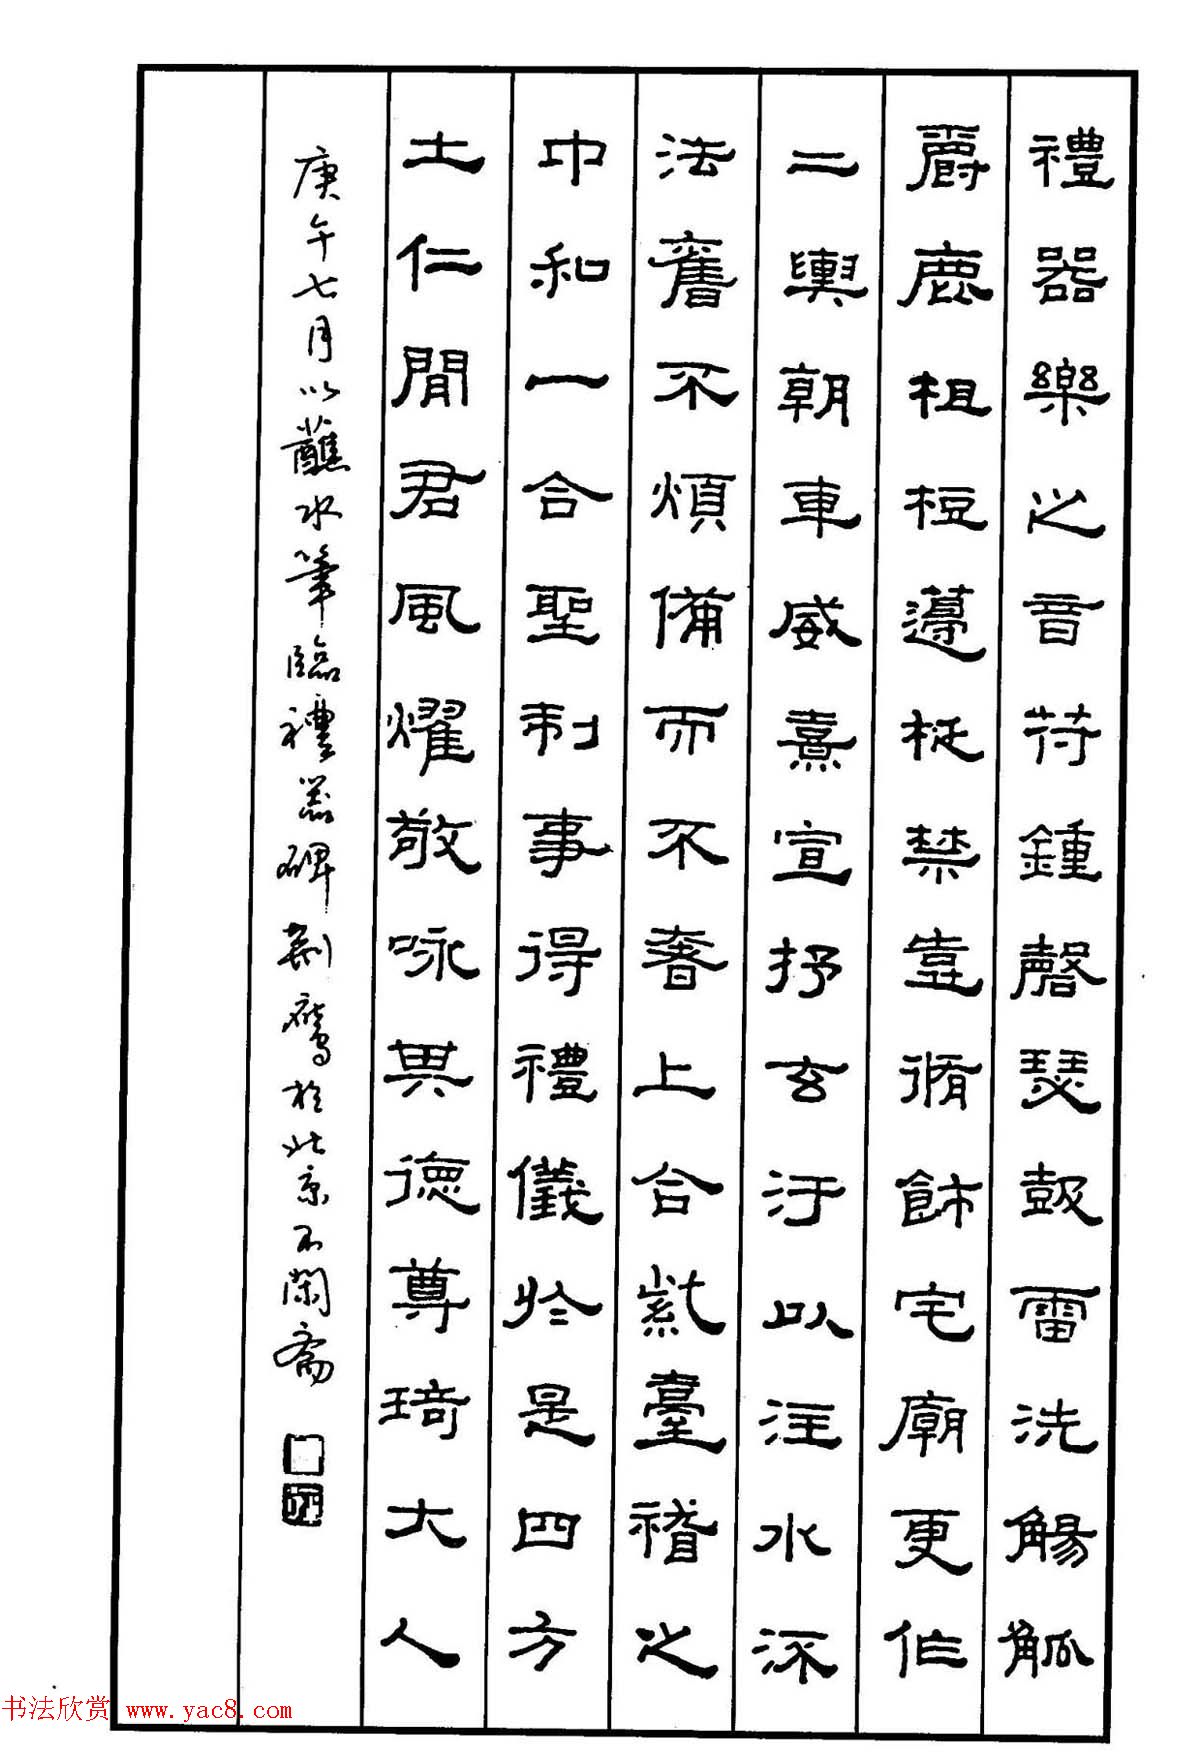 禮器樂之音苻鍾磬瑟鼓雷洗觴觚
爵鹿柤梪籩柉禁壺脩飾宅廟更作
二輿朝車威熹宣抒玄汙以注水流
法舊不煩備而不奢上合紫臺稽之
中和下合聖制事得禮儀於是四方
士仁聞君風燿敬咏其德尊琦大人
庚午七月以蘸水筆臨禮器碑荊鷹於北京不閑齋
书法欣赏 www.yac8.com